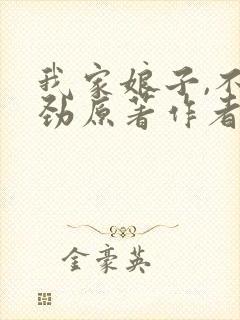 我家娘子,不
劲原著作者
金豪英